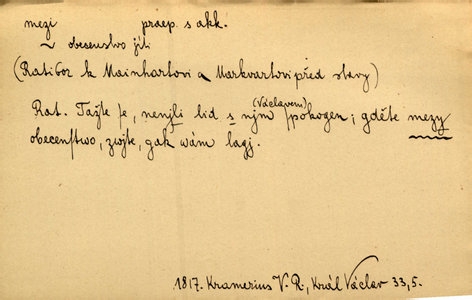 mezi praep. s akk.
~ obecenstvo jíti
(Ratibor k Mainhartovi a Markvartovi před stavy)
(Václavem)
Rat. Tažte se, nenjli lid s njm pokogen; gděte mezy
obecenstwo, zwjte, gak wám lagj.
1817. Kramerius V. R., Král Václav 33, 5.